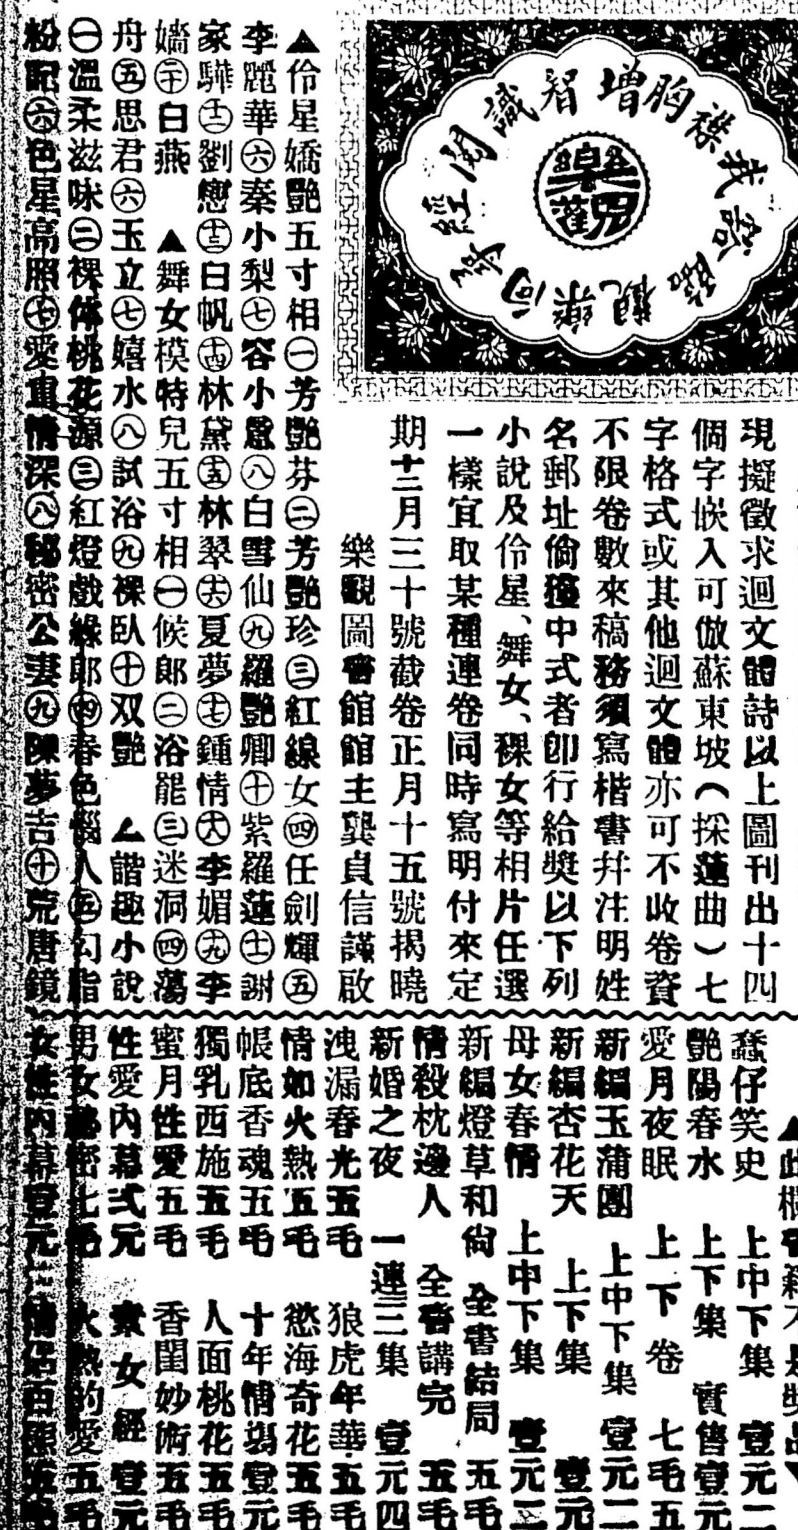 樂觀
增智識閱經學問向樂觀啓我襟胸
現擬徵求迴文體詩以上圖刊出十四
個字嵌入可倣蘇東坡（採蓮曲）七
字格式或其他迴文體亦可不收卷資
不限卷數來稿務須寫楷書幷注明姓
名郵址倘獲中式者卽行給獎以下列
小說及伶星、舞女、裸女等相片任選
一樣宜取某種連卷同時寫明付來定
期十二月三十號截卷正月十五號揭曉
樂觀圖書館館主龔貞信謹啟
▲伶星嬌艷五寸相㊀芳艷芬㊁芳艷珍㊂紅線女㊃任劍輝㊄
李麗華㊅秦小梨㊆容小意㊇白雪仙㊈羅艷卿㊉紫羅蓮⑪謝
家驊⑫劉戀⑬白帆⑭林黛⑮林翠⑯夏夢⑰鍾情⑱李媚⑲李
嬙⑳白燕　▲舞女模特兒五寸相㊀候郎㊁浴罷㊂迷洞㊃蕩
舟㊄思君㊅玉立㊆嬉水㊇試浴㊈裸臥㊉双艷　▲諧趣小說
㊀溫柔滋味㊁裸体桃花源㊂紅燈戲綠郎㊃春色惱人㊄幻脂
粉記㊅色星高照㊆愛重情深㊇秘密公妻㊈陳夢吉㊉荒唐鏡
▲此欄書籍不是獎品▼
蠢仔笑史　上中下集　壹元二
艷陽春水　上下集　實售壹元
愛月夜眠　上下卷　七毛五
新編玉蒲團　上中下集　壹元二
新編杏花天　上下集　壹元
母女春情　上中下集　壹元二
新編燈草和尙　全書結局　五毛
情殺枕邊人　全書講完　五毛
新婚之夜　一連三集　壹元四
洩漏春光五毛　狼虎年華五毛
情如火熱五毛　慾海奇花五毛
帳底香魂五毛　十年情刼壹元
獨乳西施五毛　人面桃花五毛
蜜月性愛五毛　香閨妙術五毛
性愛內幕弍元　素女經　壹元
男女秘密七毛　火熱的愛五毛
女性內幕壹元　情侶